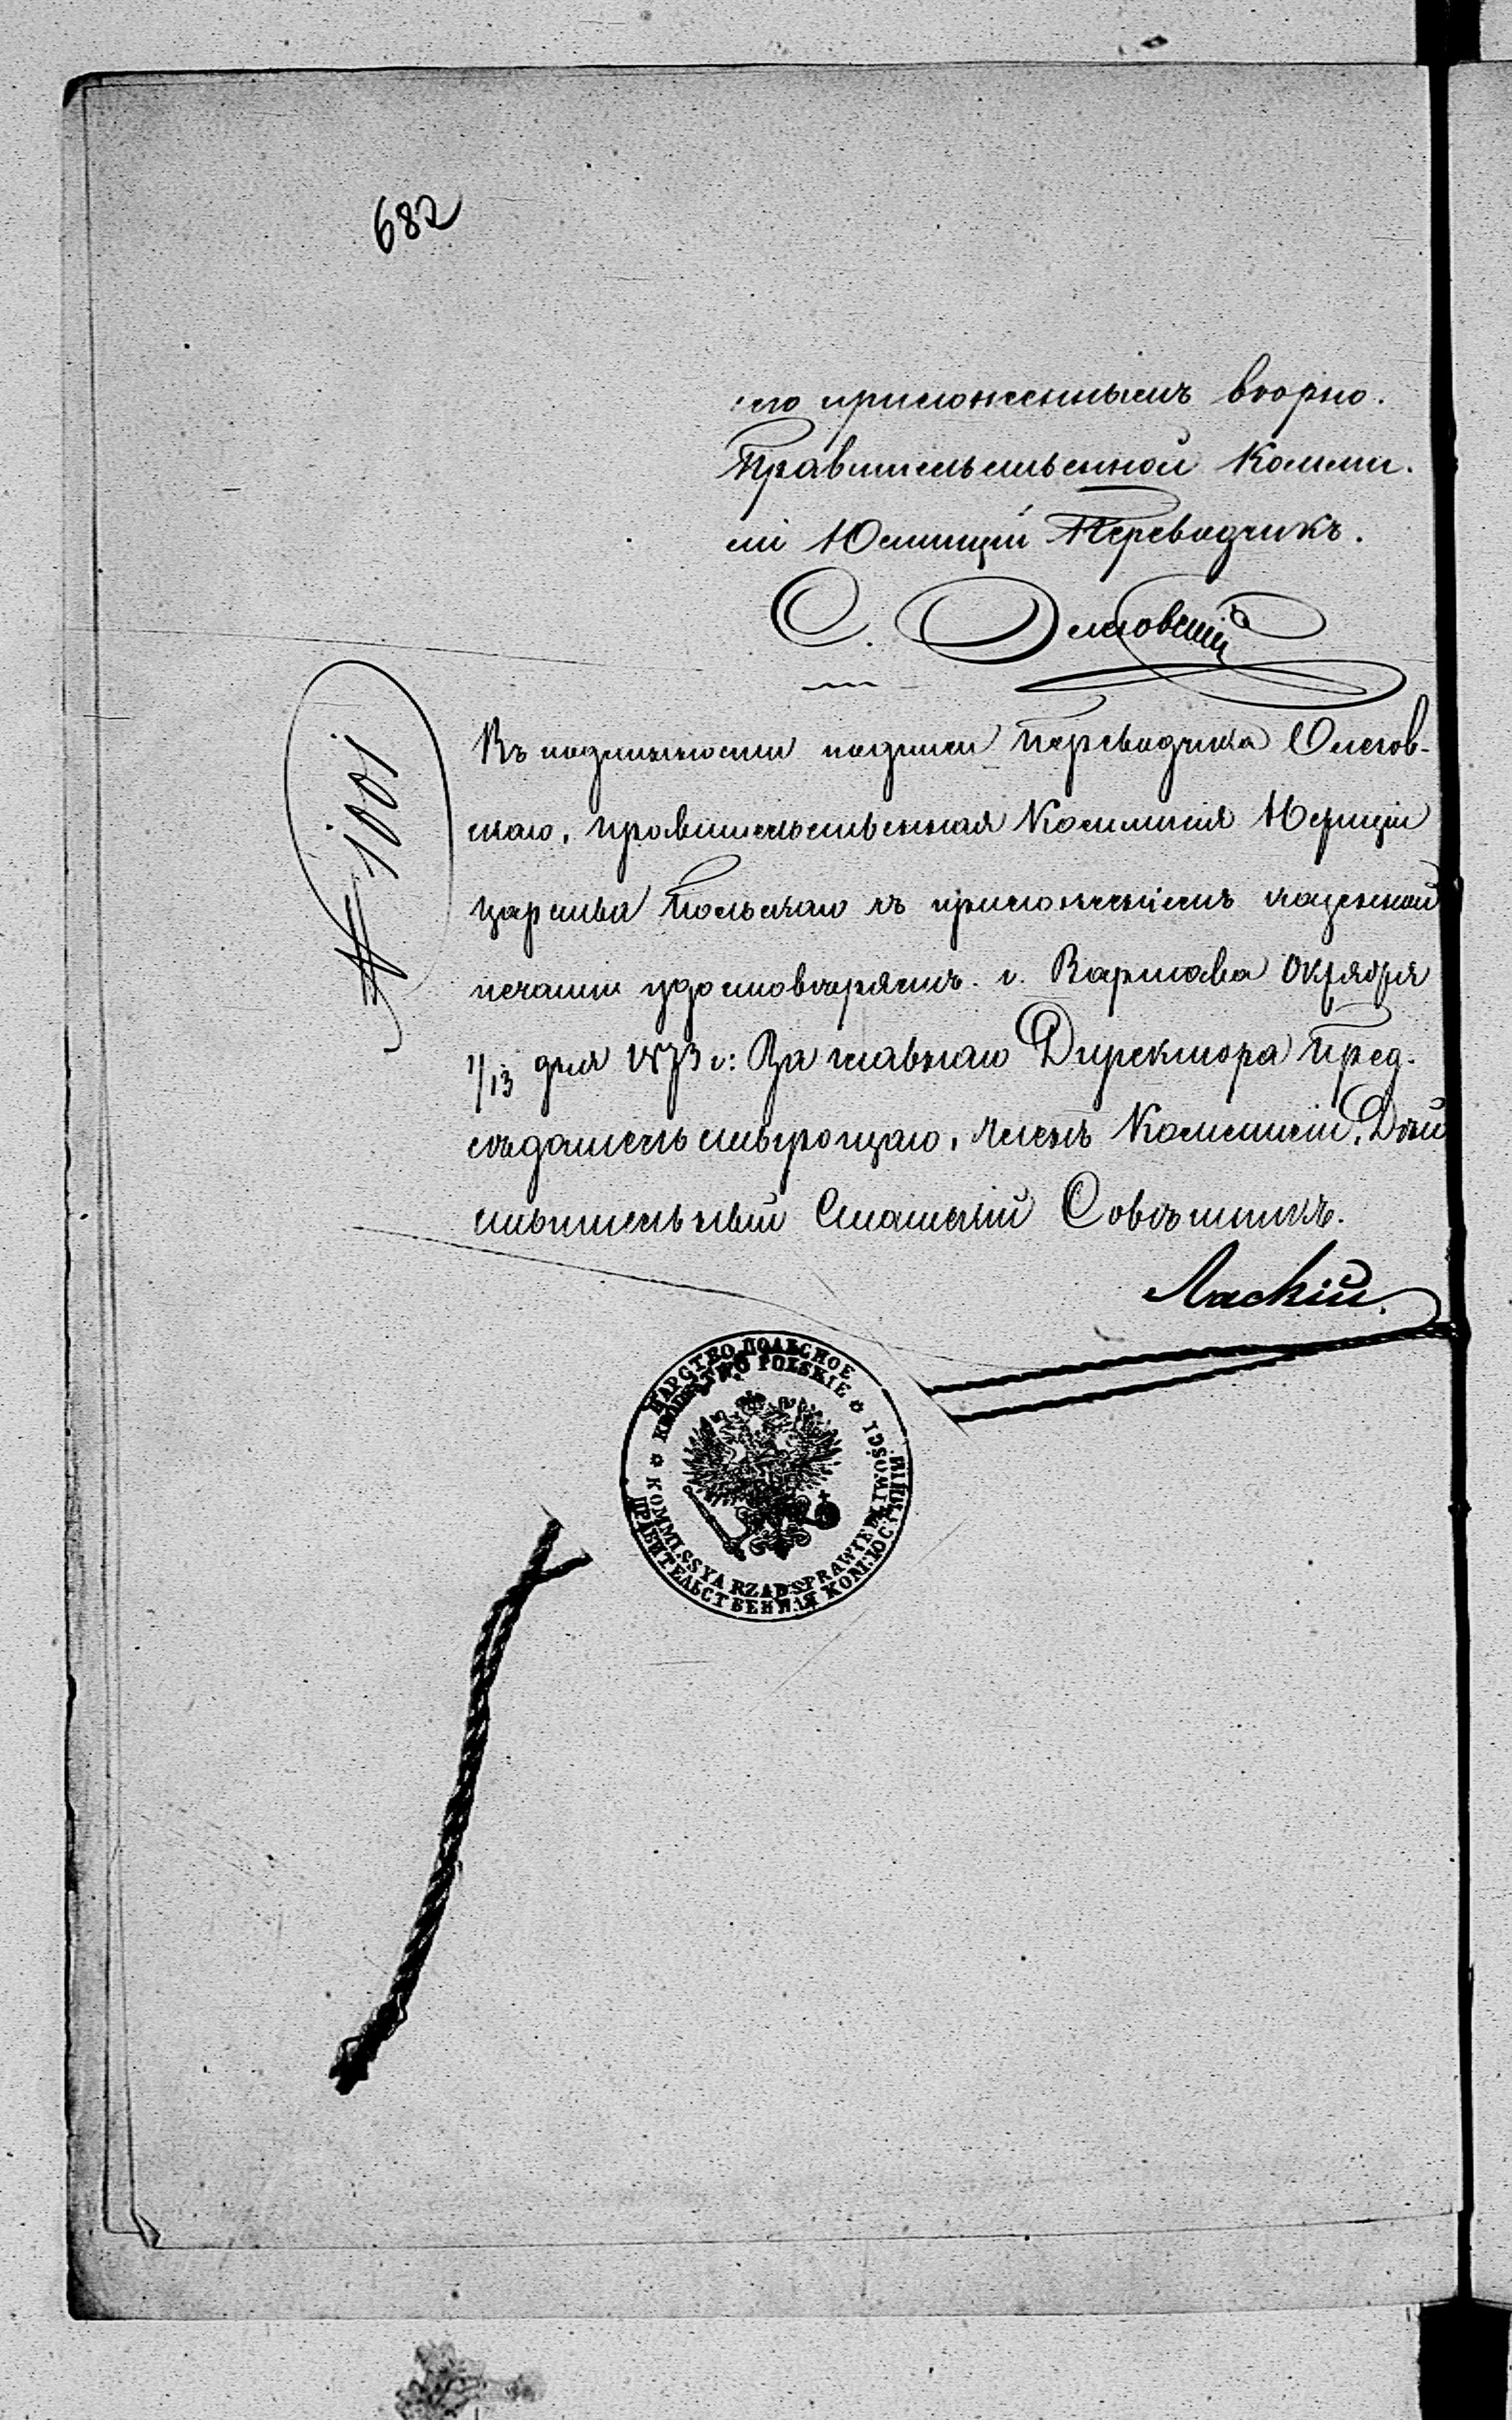 682
его приложеннымъ вѣрно.
Правительственной Комми-
сіи Юстиціи Переводчикъ.
С.
№ 1001
Въ подлинности подписи Переводчика Олехов-
скаго, Правительственная Коммисія Юстиціи
Царства Польскаго съ приложеніемъ казенной
печати удостовѣряетъ. г. Варшава Октября
1/13 дня 1873 г: За главнаго Директора Пред-
сѣдательствующаго, Членъ Коммисіи, Дѣй
ствительный Статскій Совѣтникъ.
Ласкій.
ЦАРСТВО ПОЛЬСКОЕ
KRÓLESTWO POLSKIE
KOMMISSYA RZĄD: SPRAWIEDLIWOŚCI
ПРАВИТЕЛЬСТВЕННАЯ КОМ: ЮСТИЦІИ